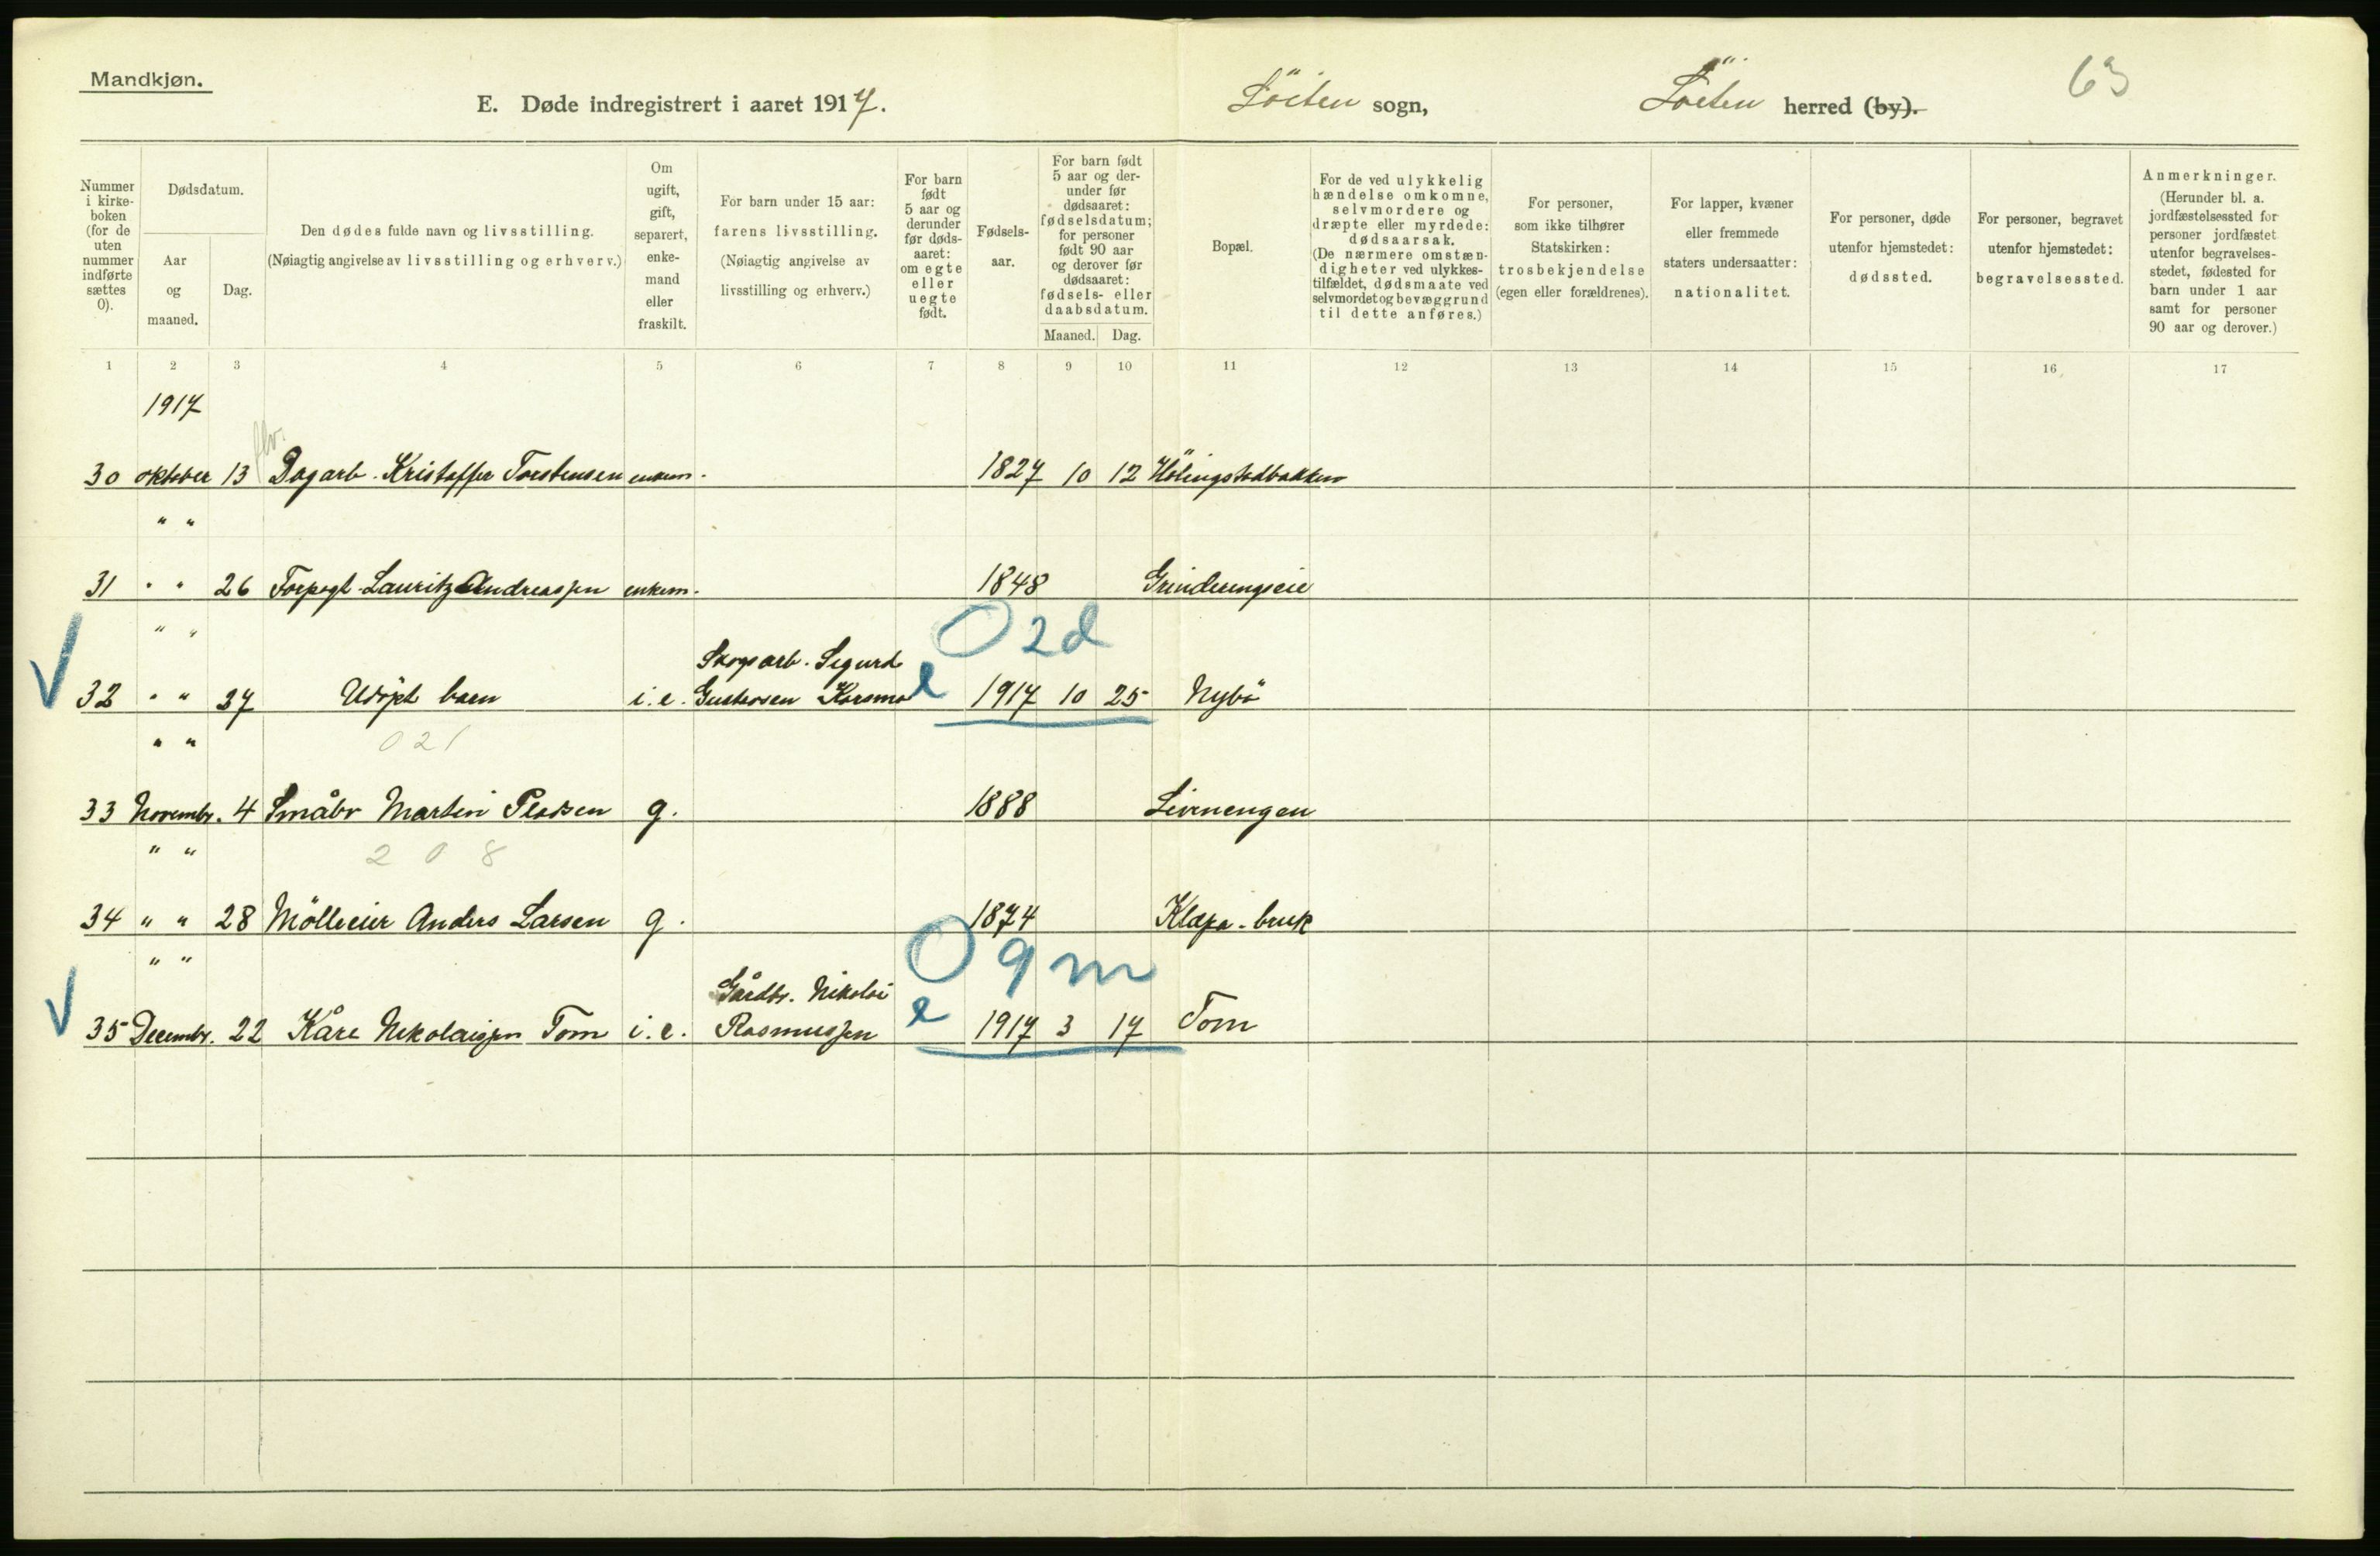 Mandkjøn.
E. Døde indregistrert i aaret 1917.
Löiten sogn,
Löiten herred (by).
63
Nummer i kirke- boken (for de uten nummer indførte sættes 0).
Dødsdatum.
Aar og maaned.
Dag.
Den dødes fulde navn og livsstilling.
(Nøiagtig angivelse av livsstilling og erhverv.)
Om ugift, gift, separert, enke- mand eller fraskilt.
For barn under 15 aar: farens livsstilling.
(Nøiagtig angivelse av livsstilling og erhverv.)
For barn født 5 aar og derunder før døds- aaret: om egte eller uegte født.
Fødsels- aar.
For barn født 5 aar og der- under før dødsaaret: fødselsdatum; for personer født 90 aar og derover før dødsaaret: fødsels- eller daabsdatum.
Maaned.
Dag.
Bopæl.
For de ved ulykkelig hændelse omkomne, selvmordere og dræpte eller myrdede: dødsaarsak.
(De nærmere omstæn- digheter ved ulykkes- tilfældet, dødsmaate ved selvmordet og bevæggrund til dette anføres.)
For personer, som ikke tilhører Statskirken: trosbekjendelse (egen eller forældrenes).
For lapper, kvæner eller fremmede staters undersaatter: nationalitet.
For personer, døde utenfor hjemstedet: dødssted.
For personer, begravet utenfor hjemstedet: begravelsessted.
Anmerkninger.
(Herunder bl. a. jordfæstelsessted for personer jordfæstet utenfor begravelses- stedet, fødested for barn under 1 aar samt for personer 90 aar og derover.)
1 2 3 4 5 6 7 8 9 10 11 12 13 14 15 16 17
1917
30 oktober 13 Dagarb. Kristoffer Torstensen enkem. 1827 10 12
" "
31 " " 26 Forpagt. Lauritz Andreassen enkem. 1848 Grinderengseie
" "
O 2d
Skogsarb. Sigurd
32 " " 27 Udöpt barn i.e. Gustavsen Korsmo e 1917 10 25 Nybö
" "
021
33 Novembr. 4 Småbr Martin g. 1888
" "
2 0 8
34 " " 28 Mölleeier Anders Larsen g. 1874 Klæpa-bruk
" "
O 9m
Gårdbr. Nikolai
35 Decembr. 22 Kåre Nikolaisen Tom i.e. Rasmussen e 1917 3 17 Tom